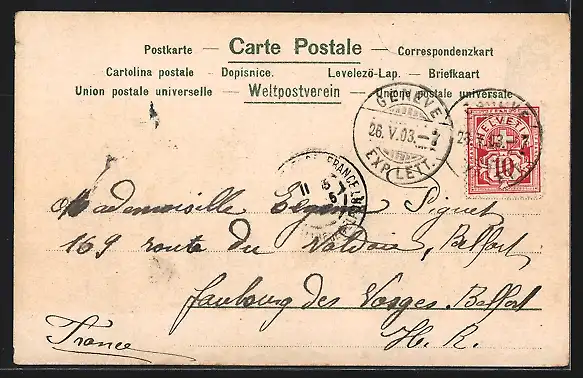 Postkarte — Carte Postale — Correspondenzkart
Cartolina postale - Dopisnice. Levelező-Lap. - Briefkaart
Union postale universelle - Weltpostverein - Unione postale universale
GENEVE
26.V.03.-7
EXP. LETT.
HELVETIA
10
Mademoiselle Piquet
169 route du Valdoie, Belfort
faubourg des Vosges. Belfort
France H. R.